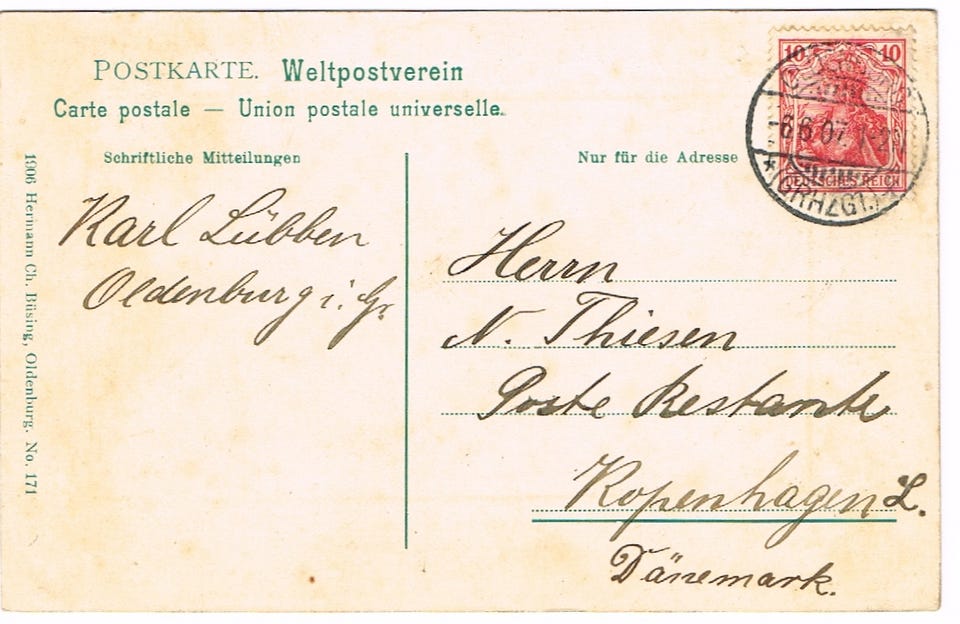 POSTKARTE. Weltpostverein
Carte postale — Union postale universelle.
Schriftliche Mitteilungen
Nur für die Adresse
10 10
6.6.07. 1-2
* (GRHZGT.)
DEUTSCHES REICH
Karl Lübben
Oldenburg i. Gr.
Herrn
N. Thiesen
Poste Restante
Kopenhagen L.
Dänemark.
1906 Hermann Ch. Büsing, Oldenburg. No. 171